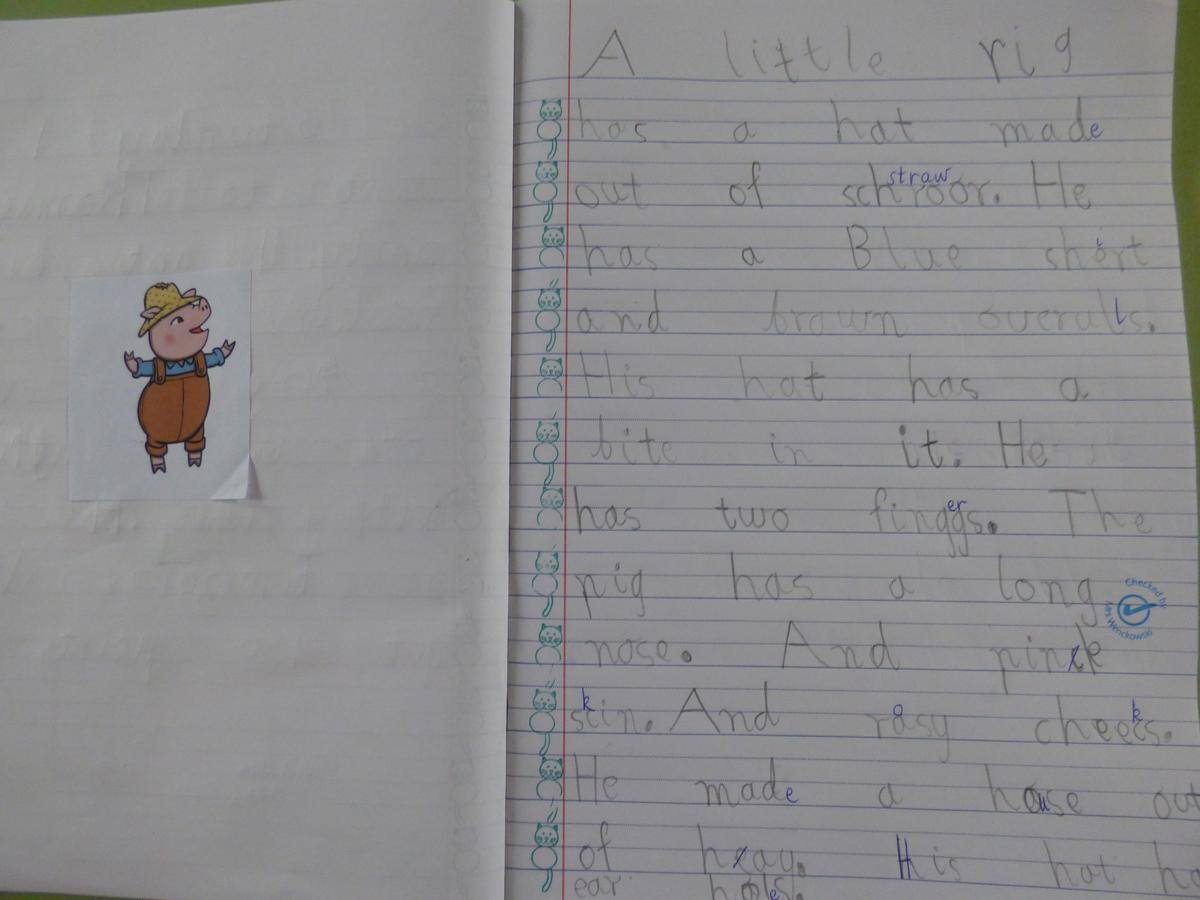 A little pig
has a hat made
out of schroor. He
straw
has a Blue shirt
and brown overalls.
His hat has a
bite in it. He
has two finggs. The
er
pig has a long
nose. And pink
stin. And rosy cheeks.
k
k
He made a house out
of hay. His hat ha
ear holes.
Checked by
Mrs Wenckowski